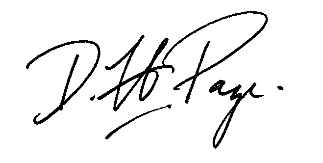 D. H. Page.